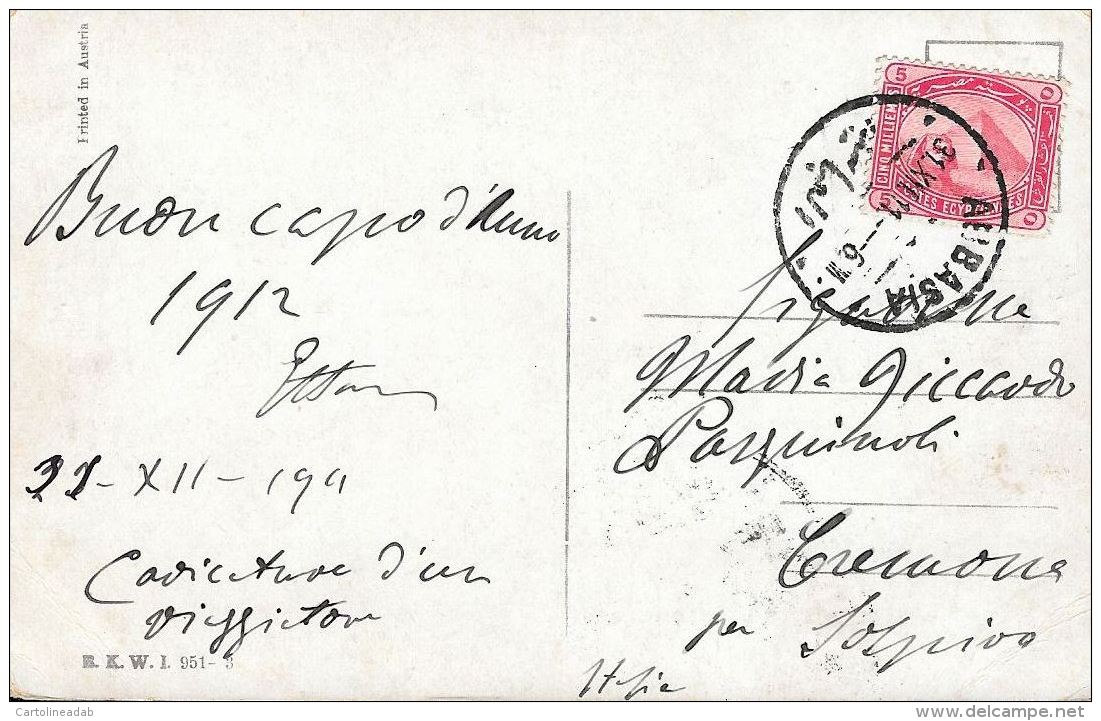 Printed in Austria
Buon capo d'Anno
1912
Ettore
31-XII-1911
Caricatura d'un
viaggiatore
B. K. W. I. 951-3
5 5
CINQ MILLIEMES
POSTES EGYPTIENNES
ABBASIA
31.XII.11
Signorine
Maria Riccardo
Pasquinoli
Cremona
per Sospiro
Italia
© Cartolineadab
delcampe.net